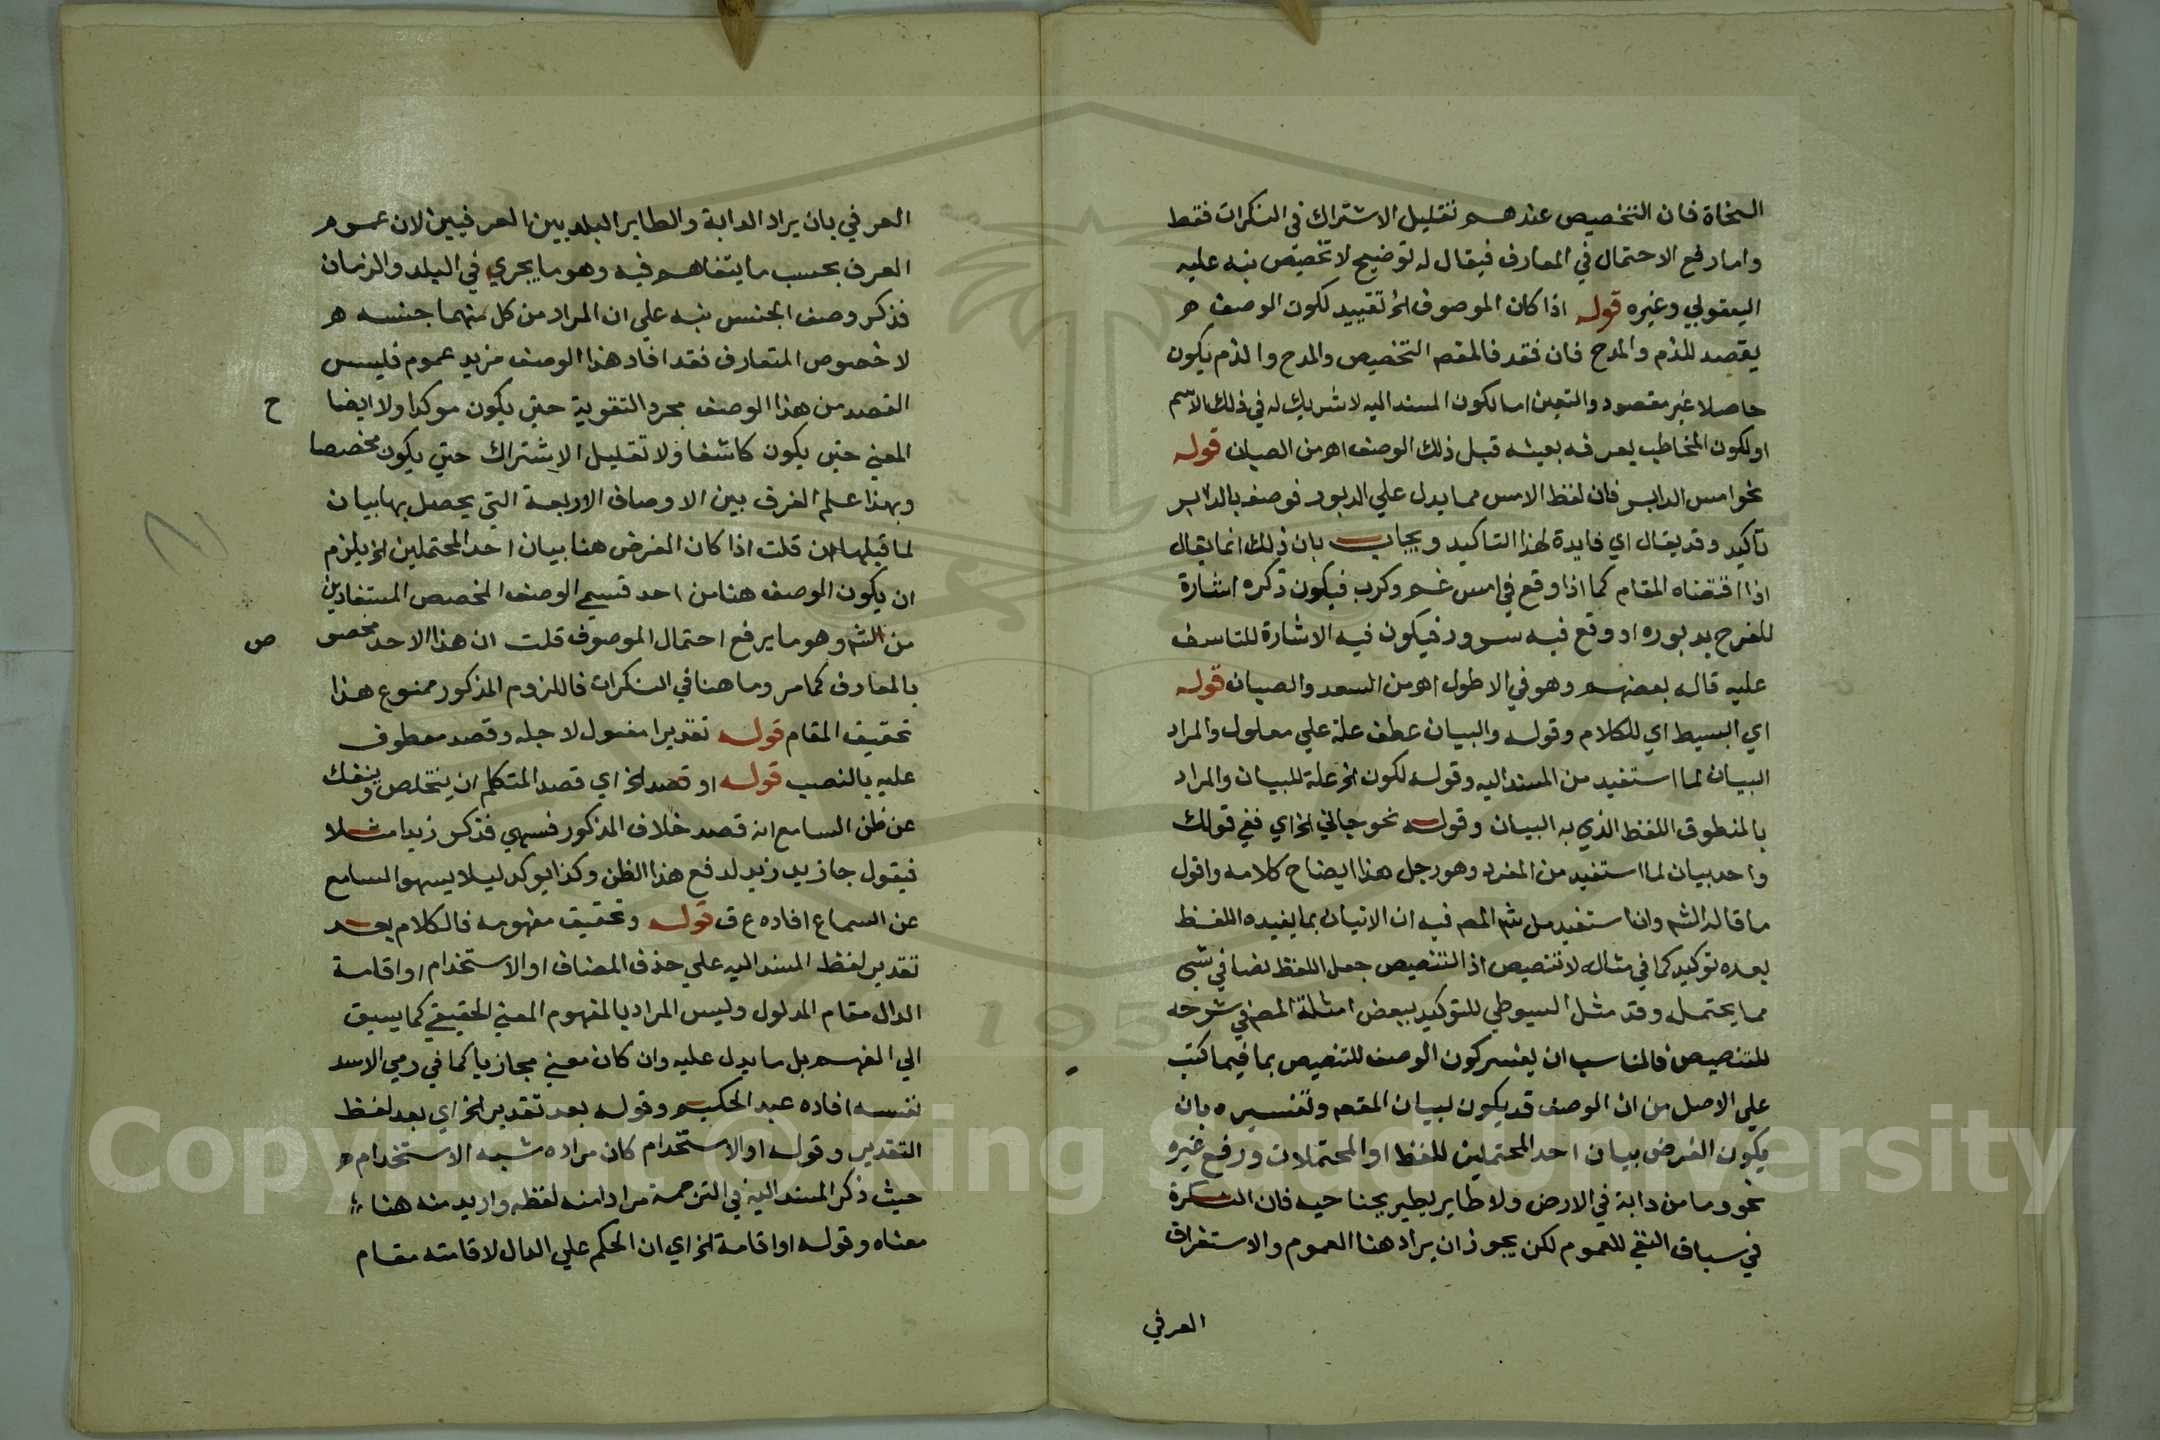 النحاة فان التخصيص عندهم تقليل الاشتراك في النكرات فقط
واما رفع الاحتمال في المعارف فيقال له توضيح لا تخصيص نبه عليه
اليعقوبي وغيره قوله اذا كان الموصوف الخ تقييد لكون الوصف ه
يقصد للذم والمدح فان فقد فالمقصم التخصيص والمدح والذم يكون
حاصلا غير مقصود والتعين اما لكون المسند اليه لا شريك له في ذلك الاسم
او لكون المخاطب يعرفه بعينه قبل ذلك الوصف اهر من الصبان قوله
نحو امس الدابر فان لفظ الامس مما يدل علي الدبور فوصفه بالدابر
تاكيد وقد يقال اي فايدة لهذا التاكيد ويجاب بان ذلك انما يقال
اذا اقتضاه المقام كما اذا وقع في امس غم وكرب فيكون ذكره اشارة
للفرح بدبوره او وقع فيه سرور فيكون فيه الاشارة للتاسف
عليه قاله بعضهم وهو في الاطول اهر من السعد والصبان قوله
اي البسيط اي للكلام وقوله والبيان عطف علة علي معلول والمراد
البيان لما استفيد من المسند اليه وقوله لكون الخ علة للبيان والمراد
بالمنطوق اللفظ الذي به البيان وقوله نحو جاني الخ اي ففي قولك
واحد بيان لما استفيد من المفرد وهو رجل هذا ايضاح كلامه واقول
ما قاله الشم وانا استفيد من شم المصم فيه ان الاتيان بما يفيده اللفظ
بعده توكيد كما في مثاله لا تنصيص اذ التنصيص جعل اللفظ نصا في شي
مما يحتمله وقد مثل السيوطي للتوكيد ببعض امثلة المصم في شرحه
للتنصيص فالمناسب ان يفسر كون الوصف للتنصيص بما فيما كتب
علي الاصل من ان الوصف قد يكون لبيان المقصم وتفسيره بان
يكون الغرض بيان احد المحتملين للفظ او المحتملات ورفع غيره
نحو وما من دابة في الارض ولا طاير يطير بجناحيه فان النكرة
في سياق النفي للعموم لكن يجوز ان يراد هنا العموم والاستغراق
العرفي
العرفي بان يراد الدابة والطاير البلديين العرفيين لان عموم
العرف بحسب ما يتفاهم فيه وهو ما يجري في البلد والزمان
فذكر وصف الجنس نبه علي ان المراد من كل منهما جنسه ه
لا خصوص المتعارف فقد افاد هذا الوصف مزيد عموم فليس
القصد من هذا الوصف مجرد التقوية حتي يكون موكدا ولا ايضا ح
المعني حتي يكون كاشفا ولا تقليل الاشتراك حتي يكون مخصصا
وبهذا علم الفرق بين الاوصاف الاربعة التي يحصل بها بيان
لما قبلها ان قلت اذا كان الغرض هنا بيان احد المحتملين الخ يلزم
ان يكون الوصف هنا من احد قسمي الوصف المخصص المستفادين
من الشم وهو ما يرفع احتمال الموصوف قلت ان هذا الاحد مخصو ص
بالمعارف كما مر وما هنا في النكرات فاللزوم المذكور ممنوع هذا
تحقيق المقام قوله تقديرا مفعول لاجله وقصد معطوف
عليه بالنصب قوله او قصد الخ اي قصد المتكلم ان يتخلص وينفك
عن ظن السامع انه قصد خلاف المذكور فسهي فذكر زيدا مثلا
فيقول جا زيد زيد لدفع هذا الظن وكذا يوكد ليلا يسهو السامع
عن السماع افاده ع ق قوله وتحقيق مفهومه فالكلام بعد
تقدير لفظ المسند اليه علي حذف المضاف او الاستخدام او اقامة
الدال مقام المدلول وليس المراد بالمفهوم المعني الحقيقي كما يسبق
الي الفهم بل ما يدل عليه وان كان معني مجازيا كما في رمي الاسد
نفسه افاده عبد الحكيم وقوله بعد تقدير الخ اي بعد لفظ
التقدير وقوله او الاستخدام كان مراده شبه الاستخدام ه
حيث ذكر المسند اليه في الترجمة مرادا منه لفظه واريد منه هنا
معناه وقوله او اقامة الخ اي ان الحكم علي الدال لاقامته مقام
Copyright © King Saud University
195